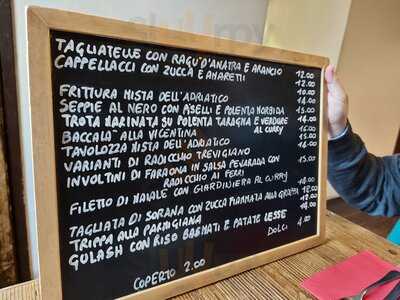 TAGLIATELLE CON RAGU' D'ANATRA E ARANCIO 12.00
CAPPELLACCI CON ZUCCA E AMARETTI 12.00
10.00
FRITTURA MISTA DELL'ADRIATICO 14.00
SEPPIE AL NERO CON PISELLI E POLENTA MORBIDA 15.00
TROTA MARINATA SU POLENTA TARAGNA E VERDURE 14.00
BACCALA' ALLA VICENTINA AL CURRY
TAVOLOZZA MISTA DELL'ADRIATICO 16.00
VARIANTI DI RADICCHIO TREVIGIANO 14.00
INVOLTINI DI FARAONA IN SALSA PEVERADA CON 15.00
RADICCHIO AI FERRI
FILETTO DI MAIALE CON GIARDINIERA AL CURRY 14.00
TAGLIATA DI SORANA CON ZUCCA FIAMMATA ALLA GRAPPA
TRIPPA ALLA PARMIGIANA 12.00
GULASH CON RISO BASMATI E PATATE LESSE 14.00
DOLCI 4.00
COPERTO 2.00